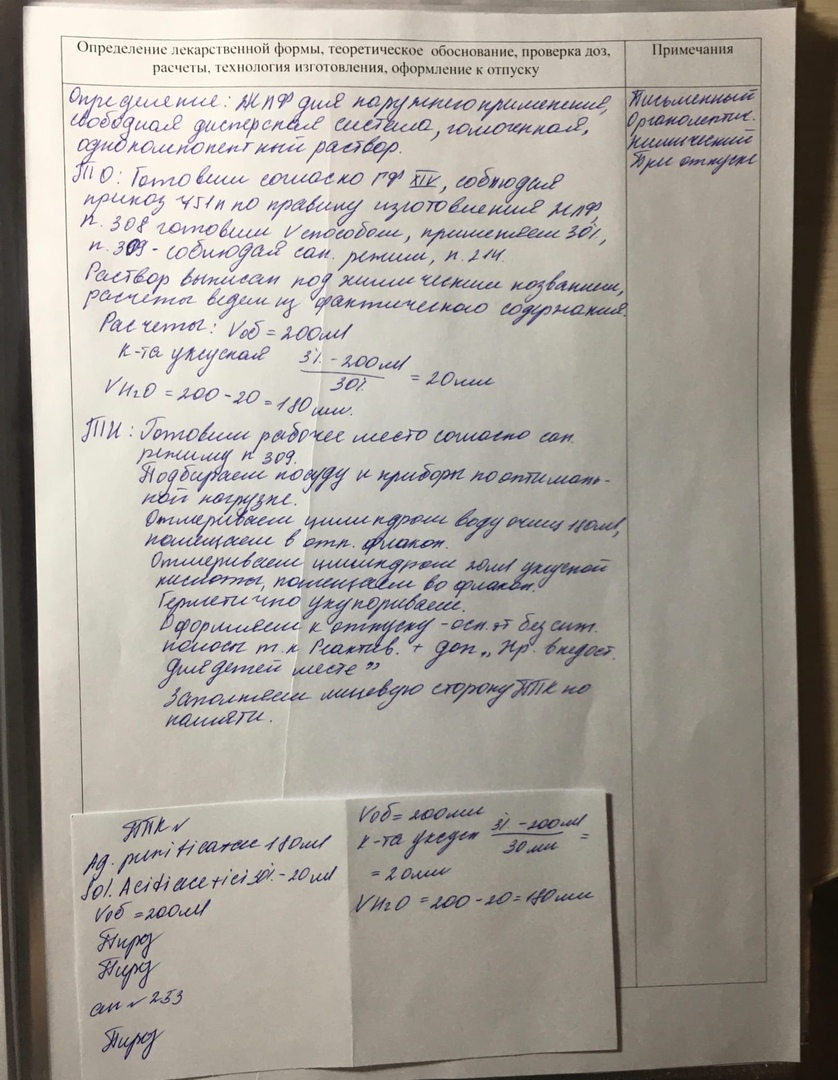 Определение лекарственной формы, теоретическое обоснование, проверка доз,
расчеты, технология изготовления, оформление к отпуску
Примечания
Определение: ЖЛФ для наружнего применения,
свободная дисперсная система, гомогенная,
однокомпонентный раствор.
ТО: Готовим согласно ГФ XIV, соблюдая
приказ 751н по правилу изготовления ЖЛФ,
п. 308 готовим V способом, применяем 30%,
п. 309 - соблюдая сан. режим, п. 214.
Раствор выписан под химическим названием,
расчёты ведем из фактического содержания.
Расчеты: Vоб = 200мл
к-та уксусная 3% - 200мл
30% = 20мл
VH2O = 200 - 20 = 180мл.
ТИ: Готовим рабочее место согласно сан.
режиму п 309.
Подбираем посуду и приборы по оптималь-
ной нагрузке.
Отмериваем цилиндром воду очищ 180мл,
помещаем в отп. флакон.
Отмериваем цилиндром 20мл уксусной
кислоты, помещаем во флакон.
Герметично укупориваем.
Оформляем к отпуску - осн. эт без сигн.
полосы т. к Реактив. + доп „Хр. в недост.
для детей месте”
Заполняем лицевую сторону ППК по
памяти.
Письменный
Органолептич.
Химический
При отпуске
ППК №
Aq. purificatae 180ml
Sol. Acidi acetici 30% - 20ml
Vоб = 200мл
№ 253
Vоб = 200мл
к-та уксусн 3% - 200мл
30мл =
= 20мл
VH2O = 200 - 20 = 180мл